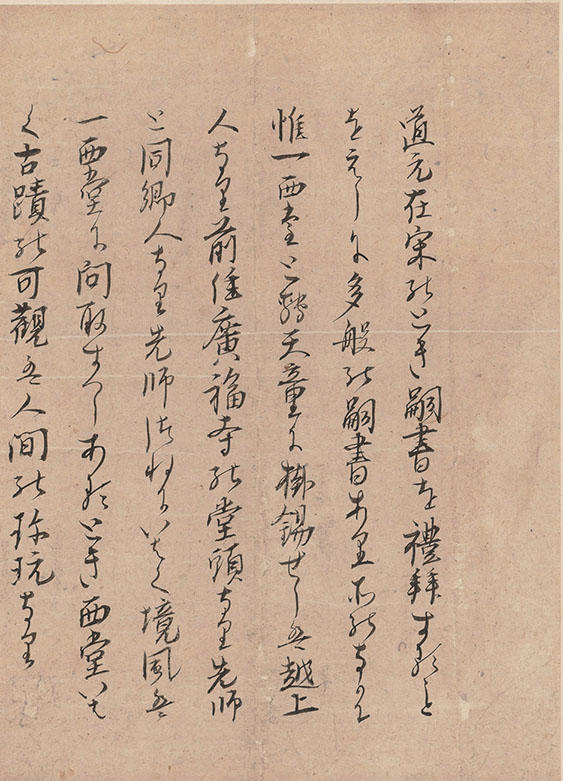 道元在宋のとき嗣書を禮拜すること
をえしに多般の嗣書ありそのなかに
惟一西堂とて天童に掛錫せしは越上
人なり前住廣福寺の堂頭なり先師
と同郷人なり先師つねにいはく境風は
一西堂に問取すへしあるとき西堂いは
く古蹟の可觀は人間の珎玩なり